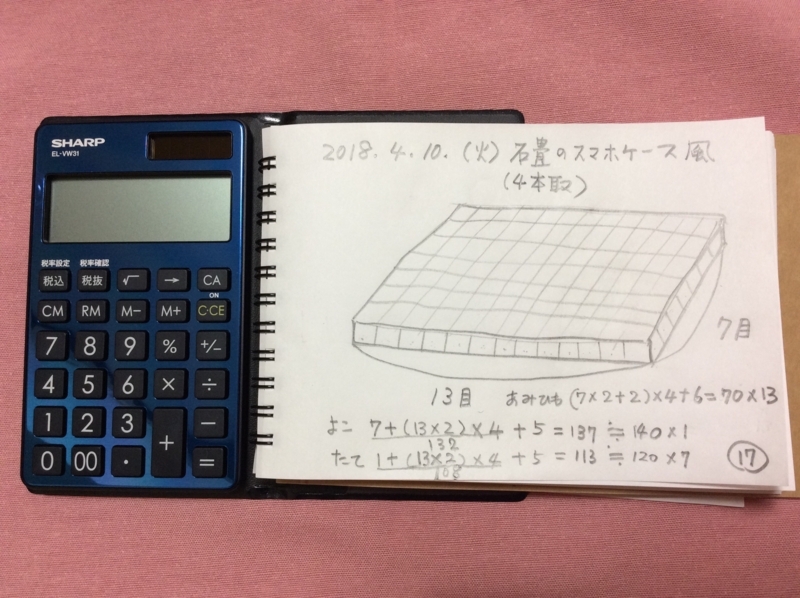 SHARP
EL-VW31
税率設定 税率確認
税込 税抜 √ → CA
ON
CM RM M− M+ C·CE
7 8 9 % +/−
4 5 6 × ÷
1 2 3 + −
0 00 · =
2018. 4. 10. (火) 石畳のスマホケース風
(4本取)
7目
13目 あみひも (7×2+2)×4+6=70×13
よこ 7+(13×2)×4+5=137≒140×1
132
たて 1+(13×2)×4+5=113≒120×7
108
17